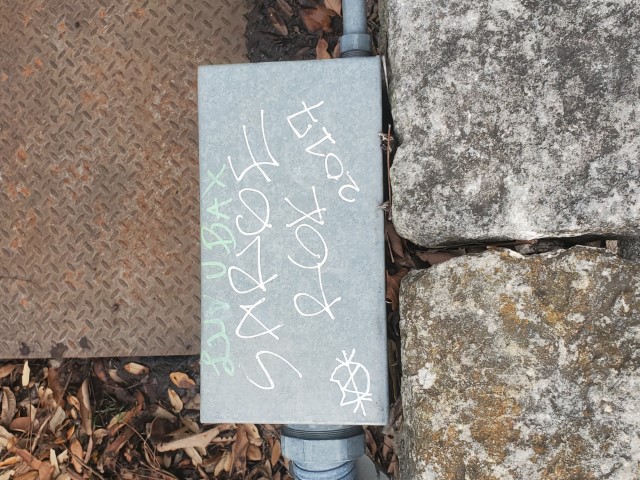 LUV U BAX
SAROE
RGK
2017